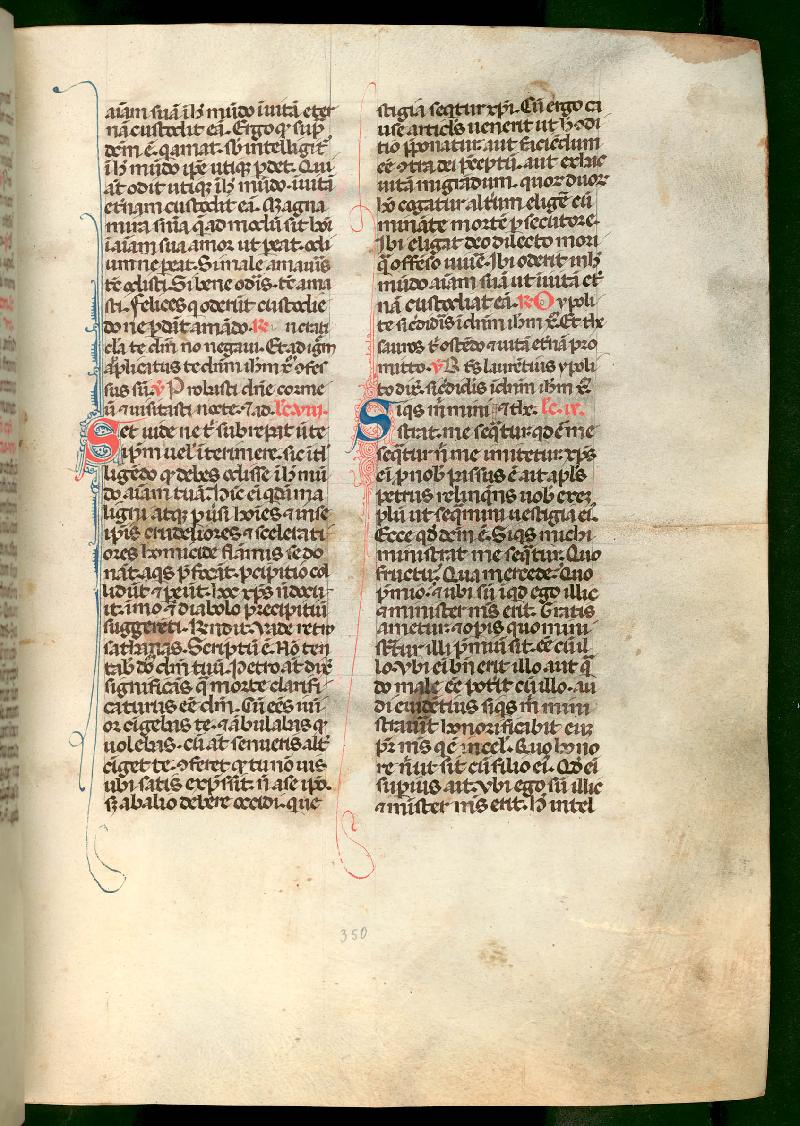 aīam suā ī h̄ mūdo ī uitā eter
nā custodit eā. Ergo q̄ sup̄
dem ē. q amat. sb̄ intelligit᷑
ī h̄ mūdo ip̄e utiqꝫ p̄det. Qui
aūt odit utiqꝫ ī h̄ mūdo. ī uitā
et̄nam custodit eā. Magna
mira sn̄ia q̄ ad modū sit hoī
ī aīam sua amor ut p̄eat. odi
um ne p̄eat. Si male amaũis
tc̄ odisti. Si bene odīs. tc̄ ama
sti. Felices q oderūt custodie
do ne p̄dāt amādo. Re
cla te dm̄ no negaui. Et ad igm̄
applicatus te dm̄ ihm̄ xp̄ ↄfes
sus sū. ℣ Probasti dn̄e corme
ū ⁊ uisitasti nocte. ⁊ ad. lc̄. viii.
Set uide ne t̄ subrepat ut te
ip̄m uel' īterimere. sic īt̄l
ligēdo q̄ debes odisse ī h̄ mū
do aīam tuā. Hīc ei q̄dā ma
ligni atqꝫ p̄ũsi hoīes ⁊ ī se
ip̄is crudeliores ⁊ scelerati
ores homicide flāmis se do
nāt. aqs p̄focāt. p̄cipitio col
lidūt ⁊ p̄eūt. hoc xp̄s n̄ docu
it. īmo ⁊ diabolo precipitiū
suggerēti. Rn̄dit. Vade retro
sathanas. Scriptū ē. Nō ten
tab̄ dō dm̄ tuū. Petro aūt dix̄
significās q̄ morte clarifi
caturus eēt dm̄. Cū eēs iuī
or cīgebas te. ⁊ ābulabas q̄
uolebas. cū aūt senueris alt̄
cīget te. ⁊ feret q̄ tu nō uis
ubi satis exp̄ssit. n̄ a se ip̄o.
sꝫ ab alio debere occidi. que
stigia seq̄tur xp̄i. Cū ergo ci
use articl's uenerit ut h̄ ↄdi
tio p̄ponatur. aut fiēciēdum
eē ↄtra dei p̄ceptū. aut ex hac
uitā migrādum. quoꝝ duoꝝ
hō cogatur alt̄um eligē cū
minate mortē p̄secutore.
Ibi eligat deo dilecto mori
q̄ offēso uiũe. Ibi oderit in h̄
mūdo aīam suā ut ī uitā et̄
nā custodiat eā. Re O ypoli
te si c̄didīs ī dn̄m ihm̄ xp̄. Et the
sauros t̄ ostēdo ⁊ uitā et̄nā pro
mitto. ℣ B t̄s laurētius ypoli
to dix̄. si c̄didis ī dn̄m ihm̄ xp̄
Siqs m̄ mini ⁊ the. lc̄. ix.
strat. me seq̄tur. qd ē me
seq̄tur n̄ me imitetur. xp̄s
ei p̄ nob̄ passus ē ait ap̄ls
petrus relinq̄ns nob̄ exeꝫ
plū ut seq̄mur uestigia ei᷒.
Ecce qd̄ dc̄m ē. Siqs michi
ministrat me seq̄tur. Quo
fructu. Qua mercede. Quo
p̄mio. ⁊ ubi sū īqd ego illic
⁊ minister ms̄ erit. Gratis
ametur. ⁊ opis quo mini
st̄tur illi p̄miū sit. eē cū il
lo. Vbi ei bn̄ erit illo aut q̄
do male eē pot̄it cū illo. au
di euidētius siqs m̄ mini
strauīt honorificabit eū
pr̄ ms̄ q ē in cel'. Quo hono
re n̄ ut sit cū filio ei᷒. Qd̄ ei
supius ait. Vbi ego sū illic
⁊ minister ms̄ erit. h̄ intel
350